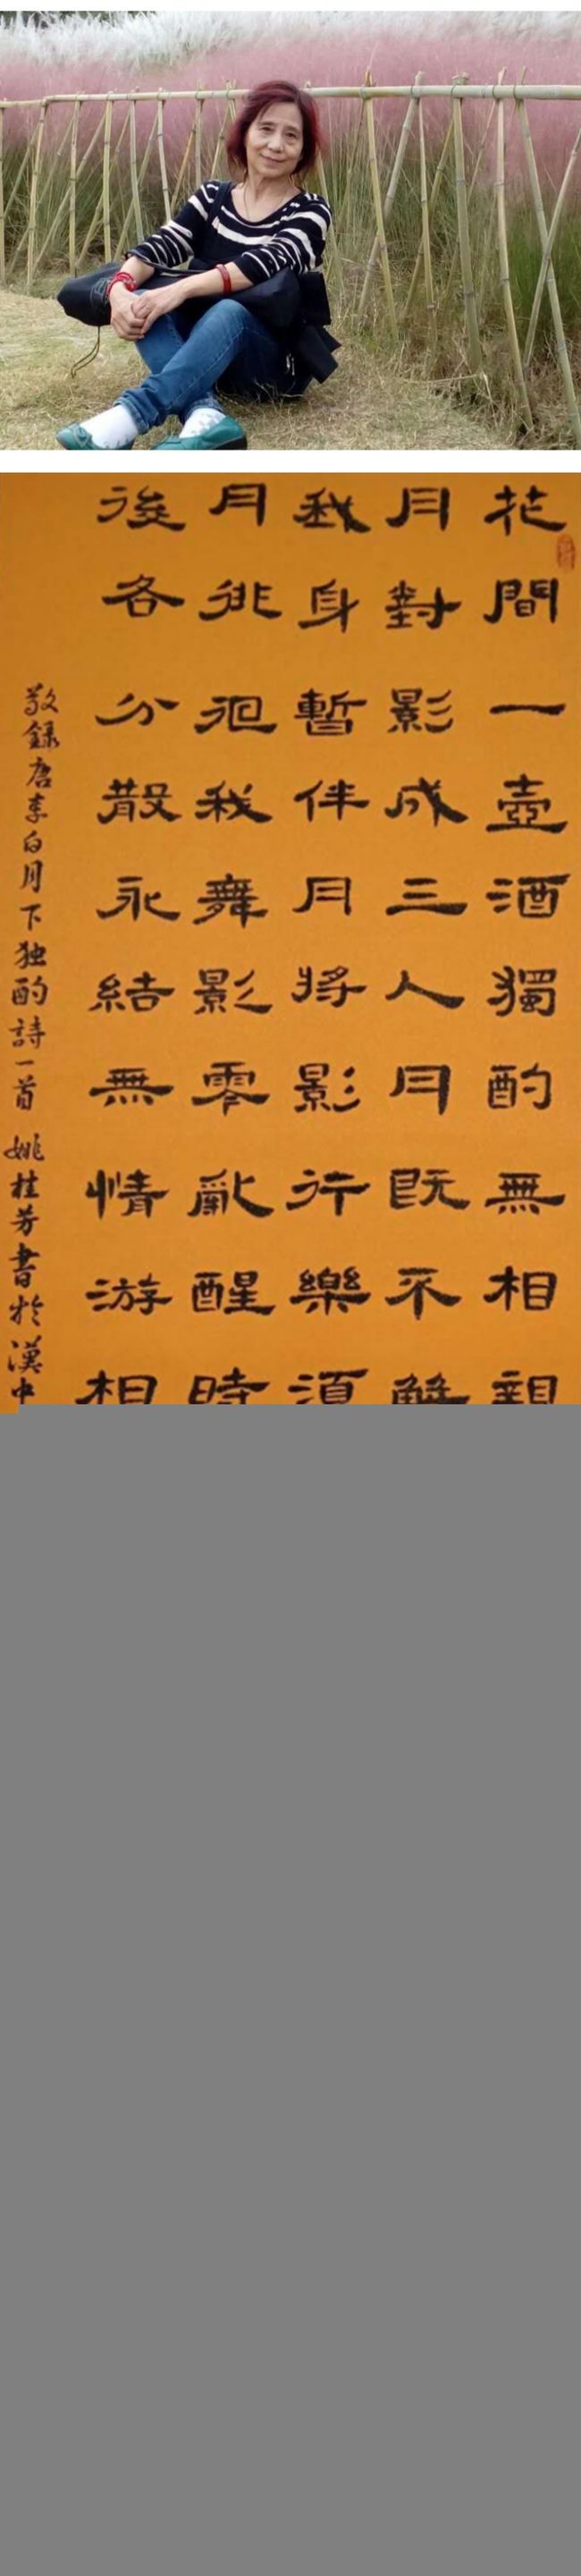 花間一壺酒獨酌無相親
月對影成三人月既不解
我身暫伴月將影行樂須
月徘徊我舞影零亂醒時
後各分散永結無情游相
敬録唐李白月下独酌詩一首 姚桂芳書於漢中